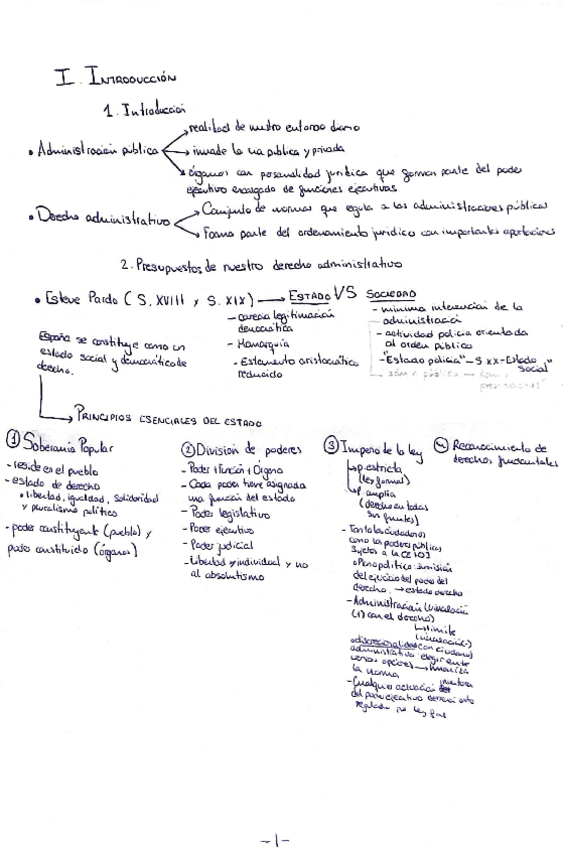 I. INTRODUCCIÓN
1. Introducción
• Administración pública
realidad de nuestro entorno diario
invade la vía pública y privada
órganos con personalidad jurídica que forman parte del poder
ejecutivo encargado de funciones ejecutivas
• Derecho administrativo
Conjunto de normas que regula a las administraciones públicas
Forma parte del ordenamiento jurídico con importantes aportaciones
2. Presupuestos de nuestro derecho administrativo
• Esteve Pardo (S. XVIII y S. XIX) → ESTADO VS SOCIEDAD
- carecía legitimación
democrática
- Monarquía
- Estamento aristocrático
reducido
- mínima intervención de la
administración
- actividad policía orientada
al orden público
- "Estado policía" - S XX - Estado
social"
España se constituye como un
estado social y democrático de
derecho.
→ PRINCIPIOS ESENCIALES DEL ESTADO
① Soberanía Popular
- reside en el pueblo
- estado de derecho
• libertad, igualdad, solidaridad
y pluralismo político
- poder constituyente (pueblo) y
poder constituido (órganos)
② División de poderes
- Poder: función + Órgano
- Cada poder tiene asignada
una función del estado
- Poder legislativo
- Poder ejecutivo
- Poder judicial
- Libertad individual y no
al absolutismo
③ Imperio de la ley
↳ p. estricta
(ley formal)
↳ p amplia
(derecho en todas
sus fuentes)
- Tanto los ciudadanos
como los poderes públicos
sujetos a la CE
del ejercicio del poder del
derecho. → estado derecho
- Administración (vinculación
(+) con el derecho)
↳ límite
(vinculación (-)
con ciudadano)
discrecionalidad
administrativa: elegir entre
varias opciones →
la norma
- Cualquier actuación
del poder ejecutivo
regulada por ley
④ Reconocimiento de
derechos fundamentales
-1-